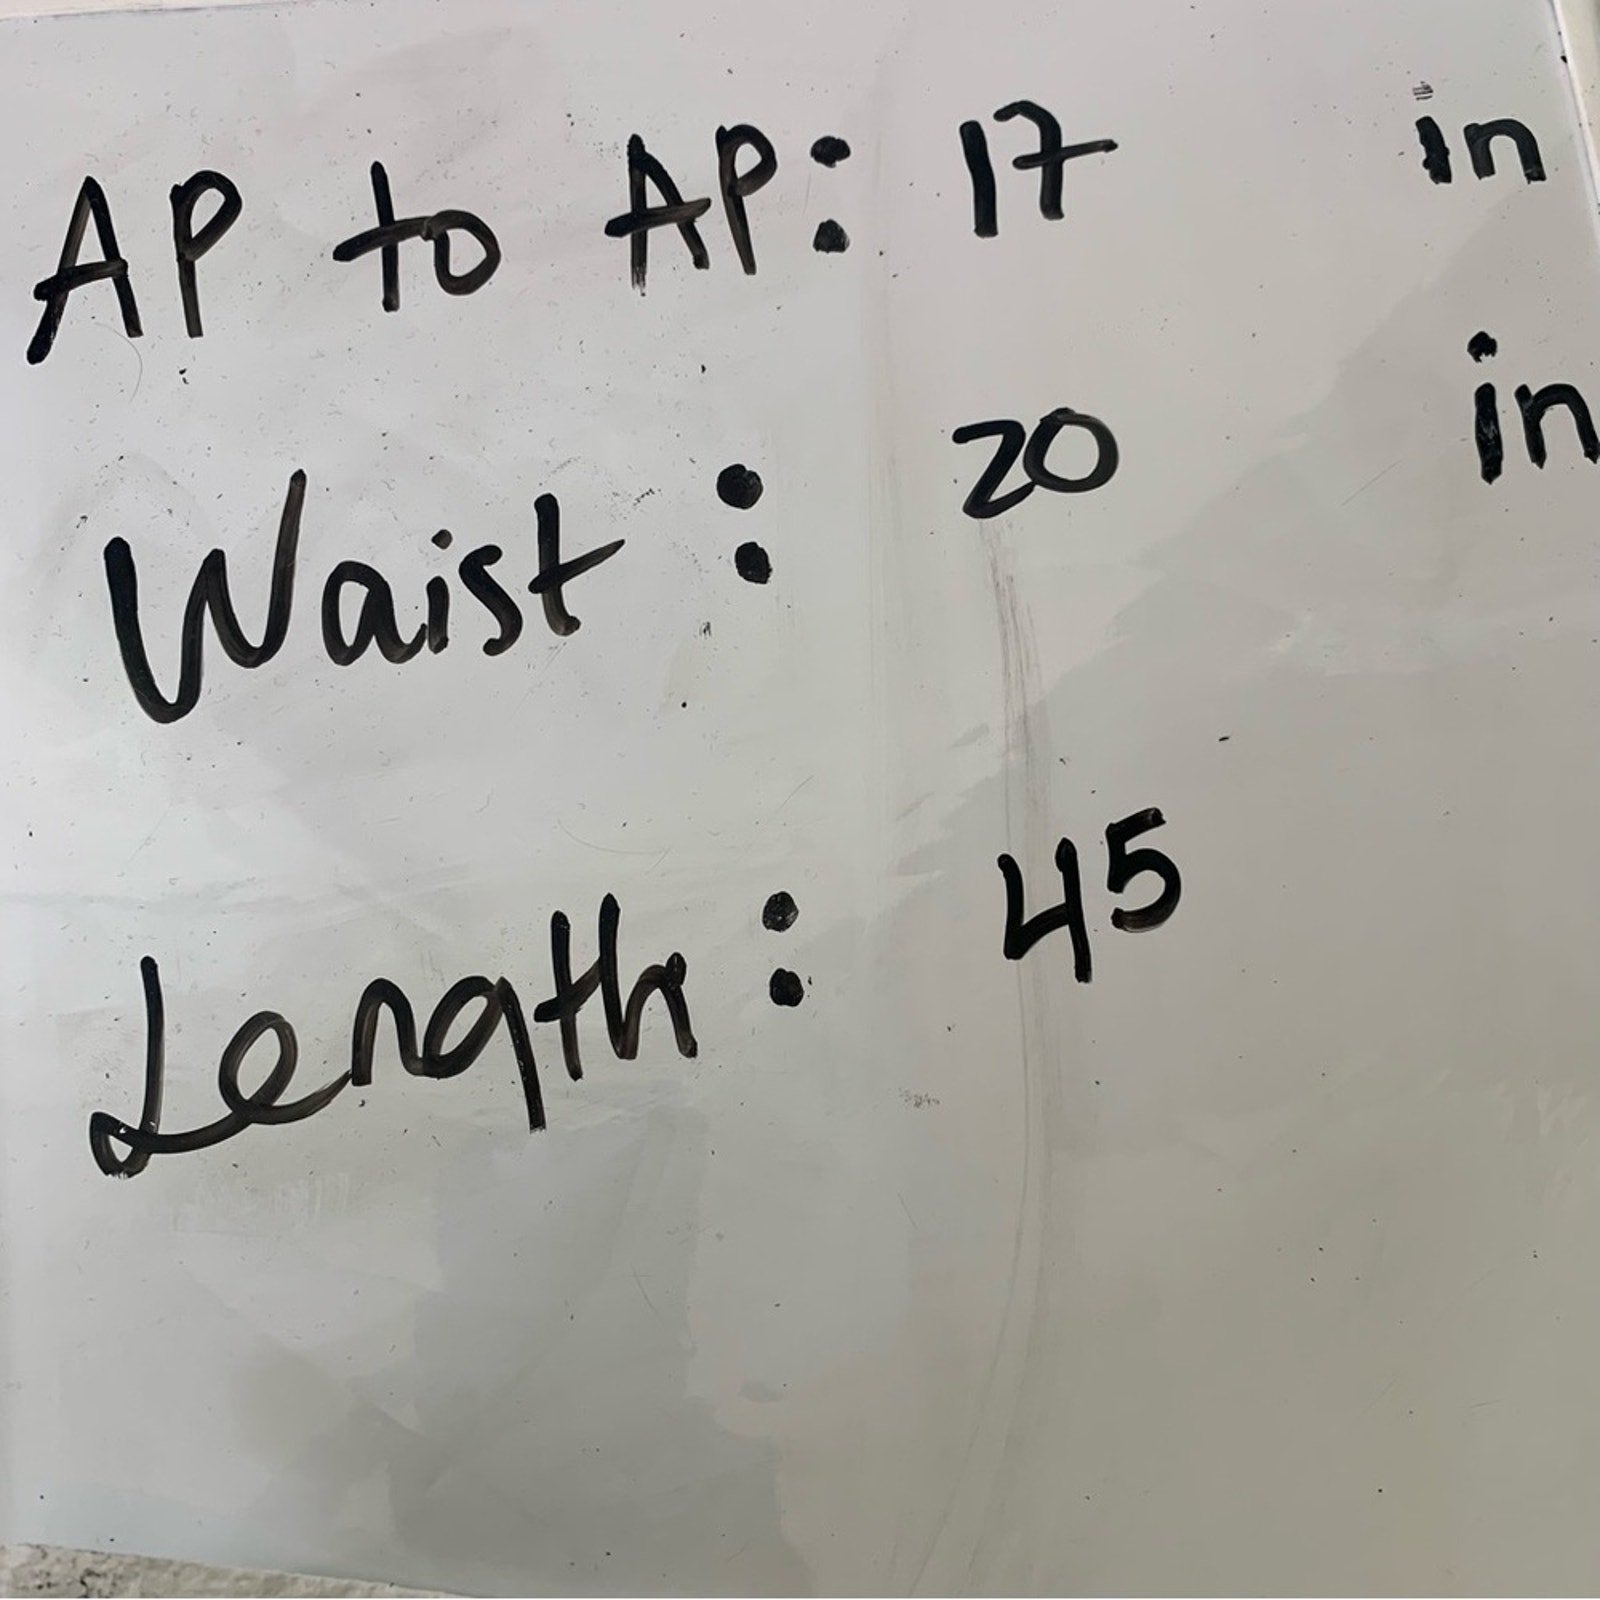 AP to AP: 17 in
Waist : 20 in
Length : 45